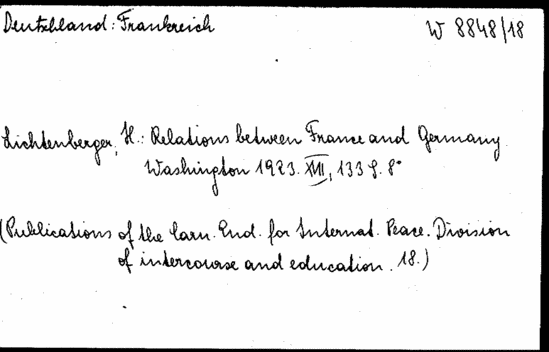 Deutschland: Frankreich
W 8848/18
Lichtenberger, H.: Relations between France and Germany.
Washington 1923. XVII, 133 S. 8°
(Publications of the Carn. End. for Internat. Peace. Division
of intercourse and education. 18.)